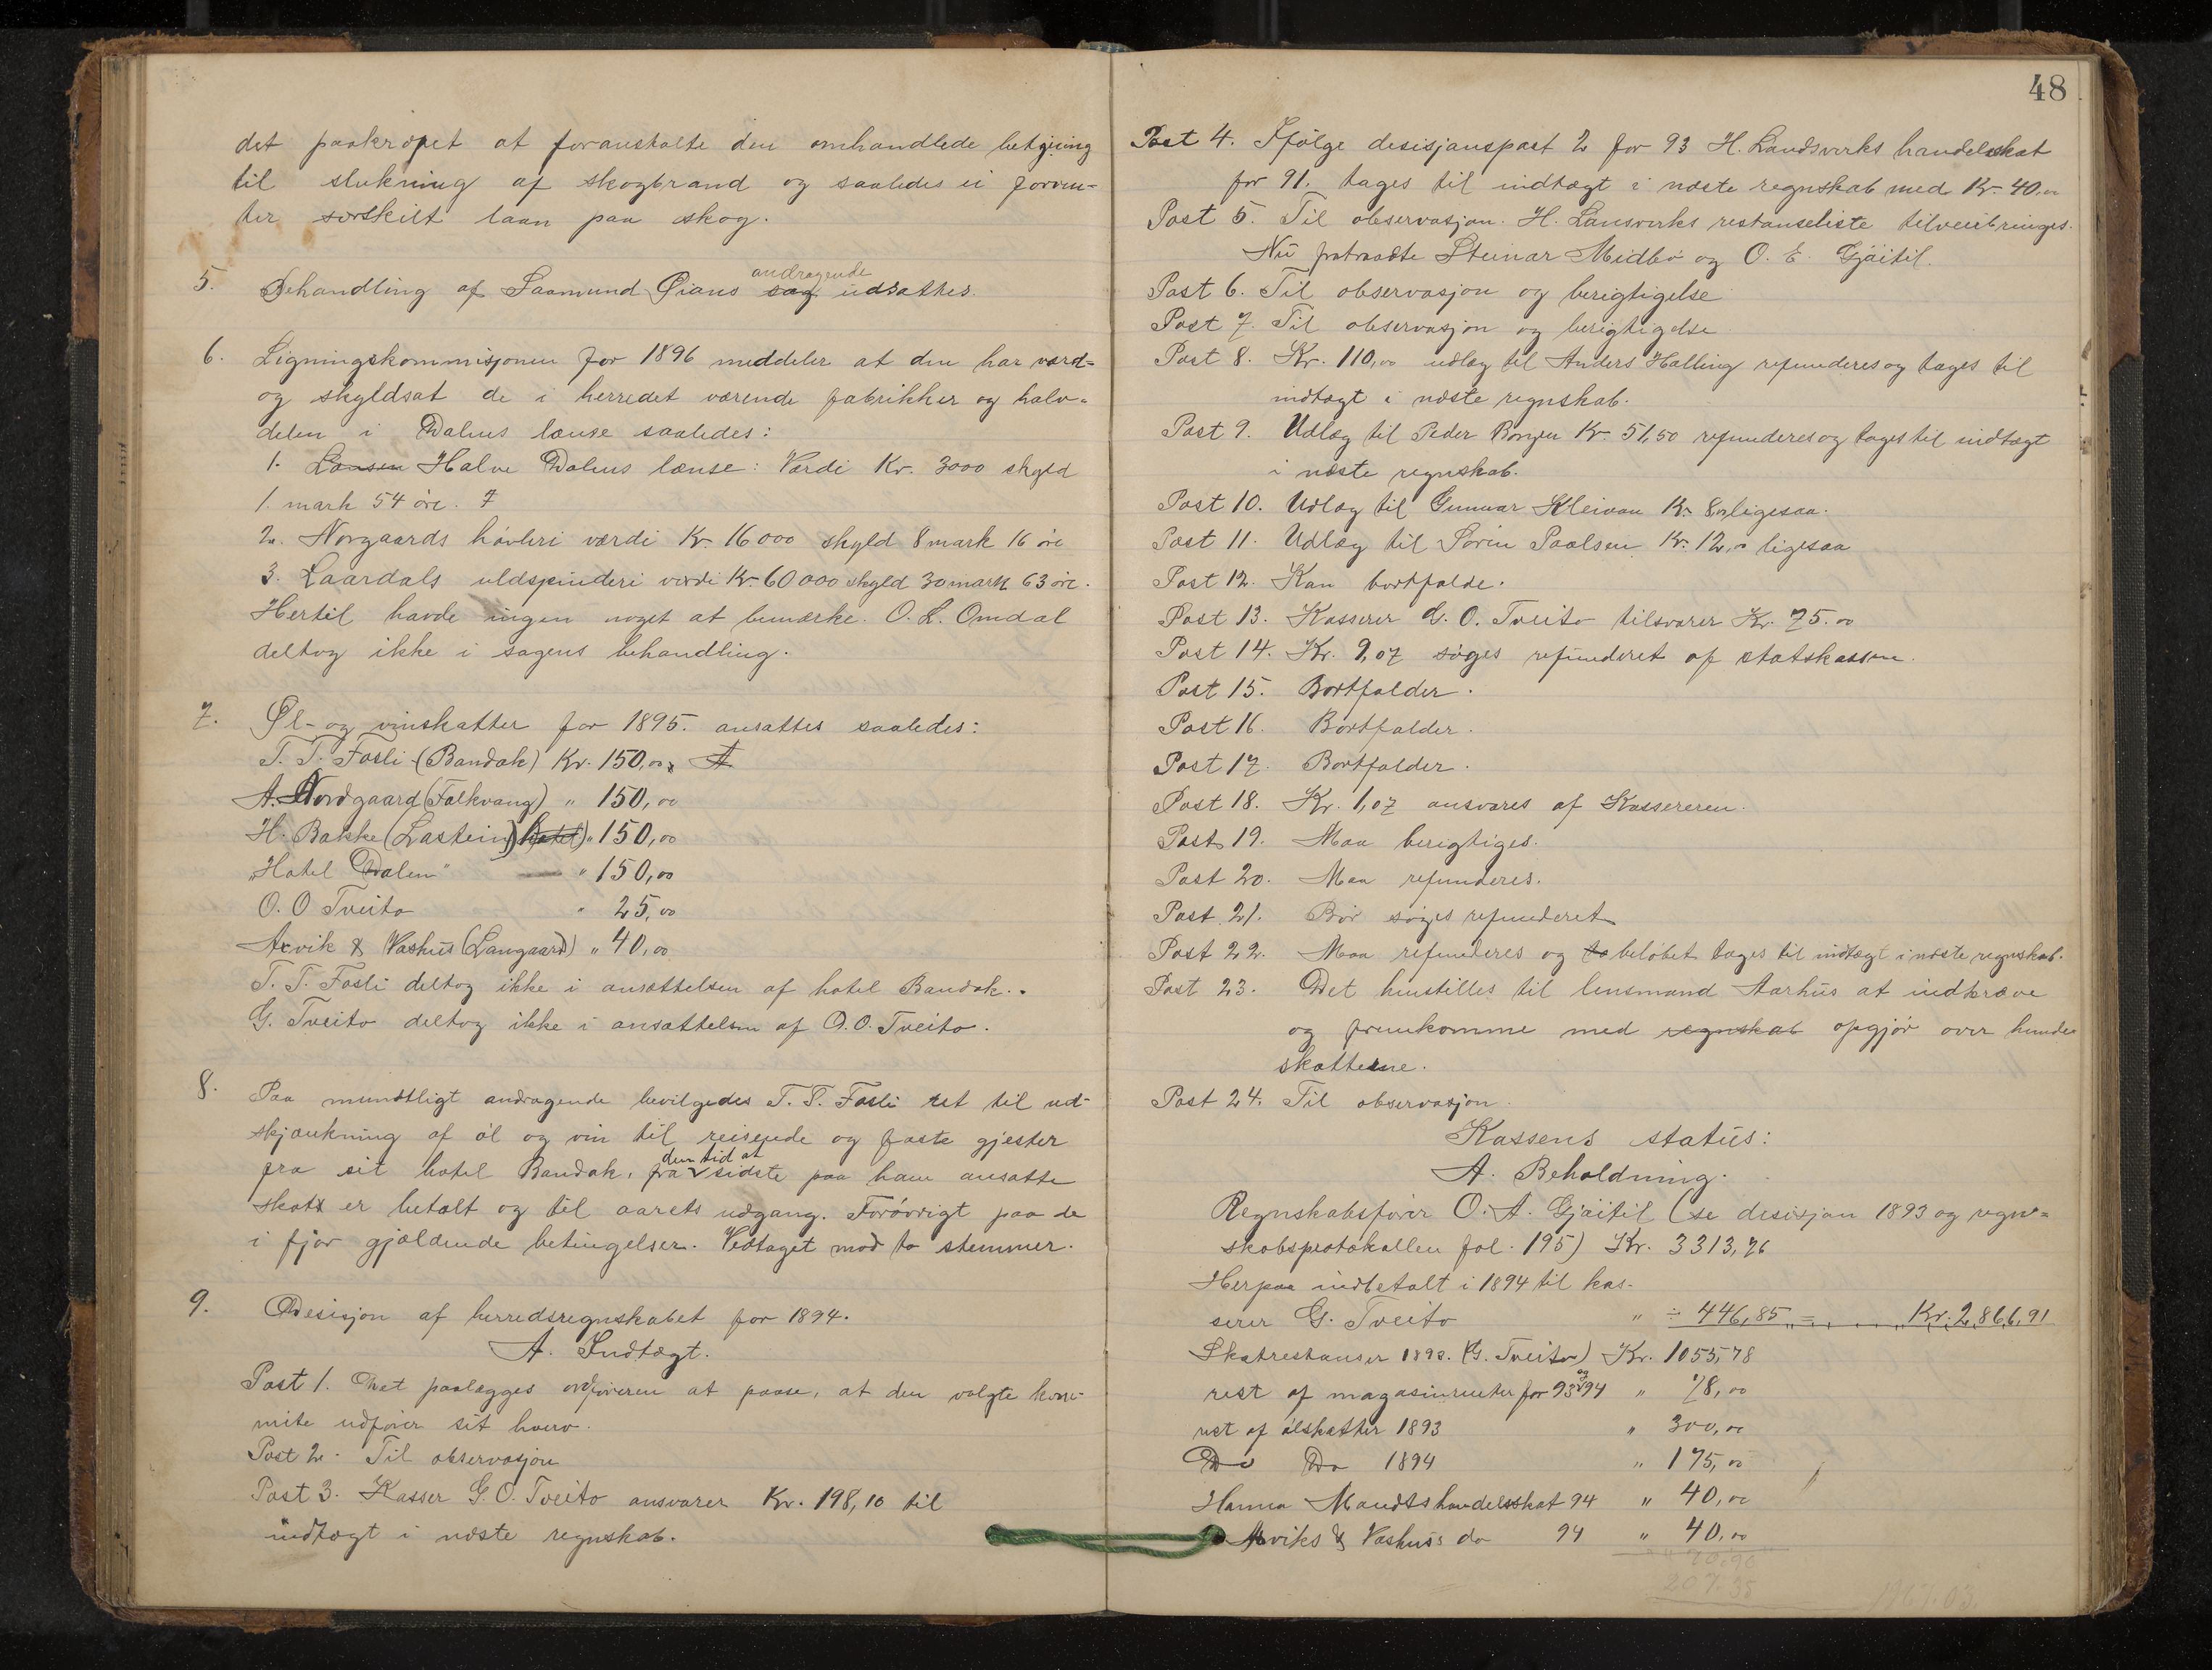 det paakrævet at foranstalte den omhandlede betjening
til slukning af skogbrand og saaledes ei forven-
ter særskilt laan paa skog.
5. Behandling af Saamund Øians sag andragende udsattes.
6. Ligningskommisjonen for 1896 meddeler at den har værd-
og skyldsat de i herredet værende fabrikker og halv-
delen i Dalens lænse saaledes:
1. Lænsen Halve Dalens lænse: Værdi Kr. 3000 skyld
1. mark 54 öre. 7
2. Norgaards hövleri værdi Kr. 16000 skyld 8 mark 16 öre
3. Laardals uldspinderi værdi Kr. 60000 skyld 30 mark 63 öre.
Hertil havde ingen noget at bemærke. O. L. Omdal
deltog ikke i sagens behandling.
7. Øl- og vinskatter for 1895. ansattes saaledes:
T. T. Fosli (Bandak) Kr. 150,00 A
A. Nordgaard (Folkvang) " 150,00
H. Bakke (Lastein) hotel) " 150,00
"Hotel Dalen" " 150,00
O. O Tveito " 25,00
Arvik & Vashus (Langaard) " 40,00
T. T. Fosli deltog ikke i ansættelsen af hotel Bandak.
G. Tveito deltog ikke i ansættelsen af O. O. Tveito.
8. Paa mundtligt andragende bevilgedes T. T. Fosli ret til ud-
skjænkning af öl og vin til reisende og faste gjester
fra sit hotel Bandak, fra den tid at sidste paa ham ansatte
skatt er betalt og til aarets udgang. Forövrigt paa de
i fjor gjældende betingelser. Vedtaget mod to stemmer.
9. Desisjon af herredsregnskabet for 1894.
A. Indtægt.
Post 1. Det paalægges ordföreren at paase, at den valgte komi-
mite udförer sit hverv.
Post 2. Til observasjon
Post 3. Kasser G. O. Tveito ansvarer Kr. 198,10 til
indtægt i næste regnskab.
48
Post 4. Ifölge desisjonspost 2 for 93 H. Landsverks handelskat
for 91. tages til indtægt i næste regnskab med Kr. 40,00
Post 5. Til observasjon. H. Lansverks restanseliste tilveiebringes.
Nu fratraadte Steinar Midbö og O. E. Gjäitil.
Post 6. Til observasjon og berigtigelse
Post 7. Til observasjon og berigtigelse
Post 8. Kr. 110,00 udlæg til Anders Halling refunderes og tages til
indtægt i næste regnskab.
Post 9. Udlæg til Peder Borgen Kr. 51,50 refunderes og tages til indtægt
i næste regnskab.
Post 10. Udlæg til Gunnar Kleivan Kr. 8,00 ligesaa.
Post 11. Udlæg til Sören Paalsen Kr. 12,00 ligesaa
Post 12. Kan bortfalde.
Post 13. Kasserer G. O. Tveito tilsvarer Kr. 75.00
Post 14. Kr. 9,07 söges refunderet af statskassen.
Post 15. Bortfalder.
Post 16. Bortfalder.
Post 17. Bortfalder.
Post 18. Kr. 1,07 ansvares af Kassereren.
Post 19. Maa berigtiges.
Post 20. Maa refunderes.
Post 21. Bör söges refunderet
Post 22. Maa refunderes og ta belöbet tages til indtægt i næste regnskab.
Post 23. Det henstilles til lensmand Aarhus at indkræve
og fremkomme med regnskab opgjör over hunde
skatterne.
Post 24. Til observasjon.
Kassens status:
A. Beholdning.
Regnskabsförer O. A. Gjäitil (se desisjon 1893 og regn=
skabsprotokollen fol. 195) Kr. 3313,76
Herpaa indbetalt i 1894 til kas-
serer G. Tveito " ÷ 446,85 = Kr. 2,866,91
Skatrestanser 1893. (G. Tveito) Kr. 1055,78
rest af magasinrenter for 93 og 94 " 78,00
rest af ölskatter 1893 " 300,00
Do Do 1894 " 175,00
Hanna Mandts handelsskat 94 " 40,00
Arviks & Vashus do 94 " 40,00
70,96
207.35
1967.03.